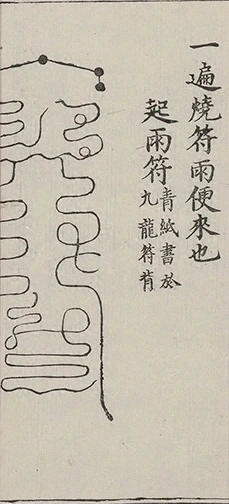 一遍燒符雨便來也
起雨符青紙書於
九龍符背